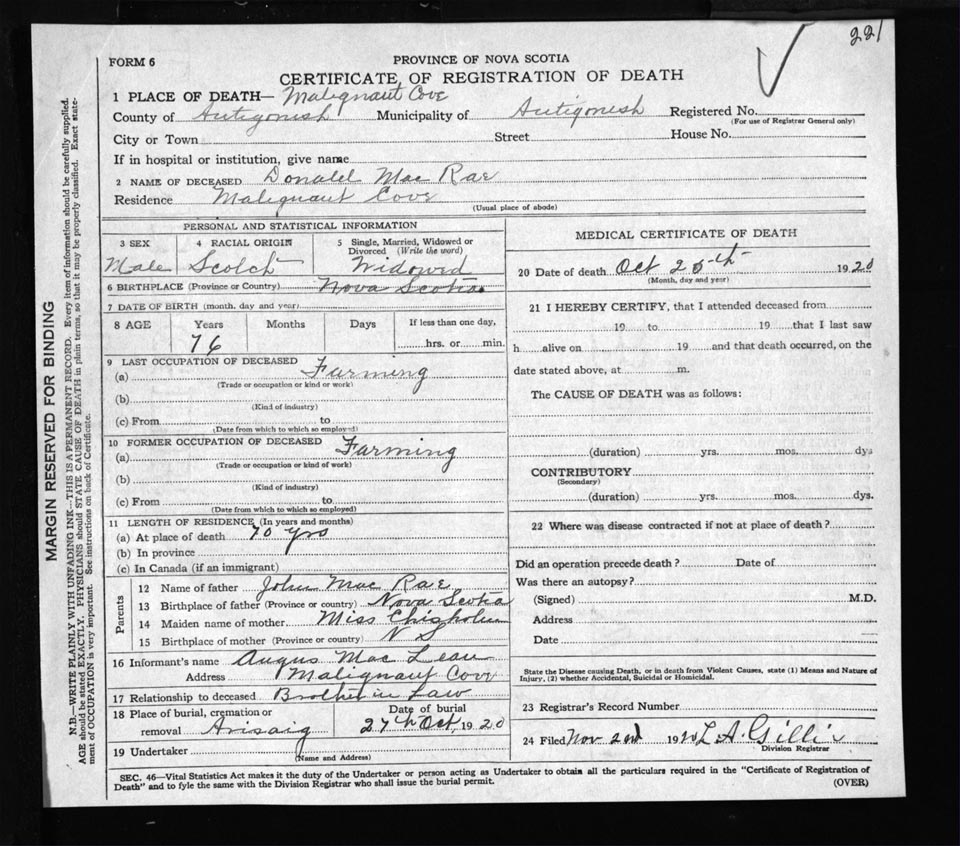 221
FORM 6
PROVINCE OF NOVA SCOTIA
CERTIFICATE OF REGISTRATION OF DEATH
1 PLACE OF DEATH— Malignant Cove
County of Antigonish Municipality of Antigonish Registered No.
(For use of Registrar General only)
City or Town Street House No.
If in hospital or institution, give name
2 NAME OF DECEASED Donald Mac Rae
Residence Malignant Cove
(Usual place of abode)
PERSONAL AND STATISTICAL INFORMATION
3 SEX 4 RACIAL ORIGIN 5 Single, Married, Widowed or
Divorced (Write the word)
Male Scotch Widowed
6 BIRTHPLACE (Province or Country) Nova Scotia
7 DATE OF BIRTH (month, day and year)
8 AGE Years Months Days If less than one day,
76 hrs. or min.
9 LAST OCCUPATION OF DECEASED
(a) Farming
(Trade or occupation or kind or work)
(b)
(Kind of industry)
(c) From to
(Date from which to which so employed)
10 FORMER OCCUPATION OF DECEASED
(a) Farming
(Trade or occupation or kind of work)
(b)
(Kind of industry)
(c) From to
(Date from which to which so employed)
11 LENGTH OF RESIDENCE (In years and months)
(a) At place of death 70 yrs
(b) In province
(c) In Canada (if an immigrant)
Parents
12 Name of father John Mac Rae
13 Birthplace of father (Province or country) Nova Scotia
14 Maiden name of mother Miss Chisholm
15 Birthplace of mother (Province or country) N S
16 Informant's name Angus Mac Lean
Address Malignant Cove
17 Relationship to deceased Brother in Law
18 Place of burial, cremation or Date of burial
removal Arisaig 27th Oct, 1920
19 Undertaker
(Name and Address)
MEDICAL CERTIFICATE OF DEATH
20 Date of death Oct 25th 1920
(Month, day and year)
21 I HEREBY CERTIFY, that I attended deceased from
19 to 19 that I last saw
h alive on 19 and that death occurred, on the
date stated above, at m.
The CAUSE OF DEATH was as follows:
(duration) yrs. mos. dys
CONTRIBUTORY
(Secondary)
(duration) yrs. mos. dys.
22 Where was disease contracted if not at place of death?
Did an operation precede death? Date of
Was there an autopsy?
(Signed) M.D.
Address
Date
State the Disease causing Death, or in death from Violent Causes, state (1) Means and Nature of
Injury, (2) whether Accidental, Suicidal or Homicidal.
23 Registrar's Record Number
24 Filed Nov 2nd 1920 L A Gillis
Division Registrar
SEC. 46—Vital Statistics Act makes it the duty of the Undertaker or person acting as Undertaker to obtain all the particulars required in the "Certificate of Registration of
Death" and to fyle the same with the Division Registrar who shall issue the burial permit.
(OVER)
MARGIN RESERVED FOR BINDING
N.B.—WRITE PLAINLY WITH UNFADING INK—THIS IS A PERMANENT RECORD. Every item of information should be carefully supplied.
AGE should be stated EXACTLY. PHYSICIANS should STATE CAUSE OF DEATH in plain terms, so that it may be properly classified. Exact state-
ment of OCCUPATION is very important. See instructions on back of Certificate.